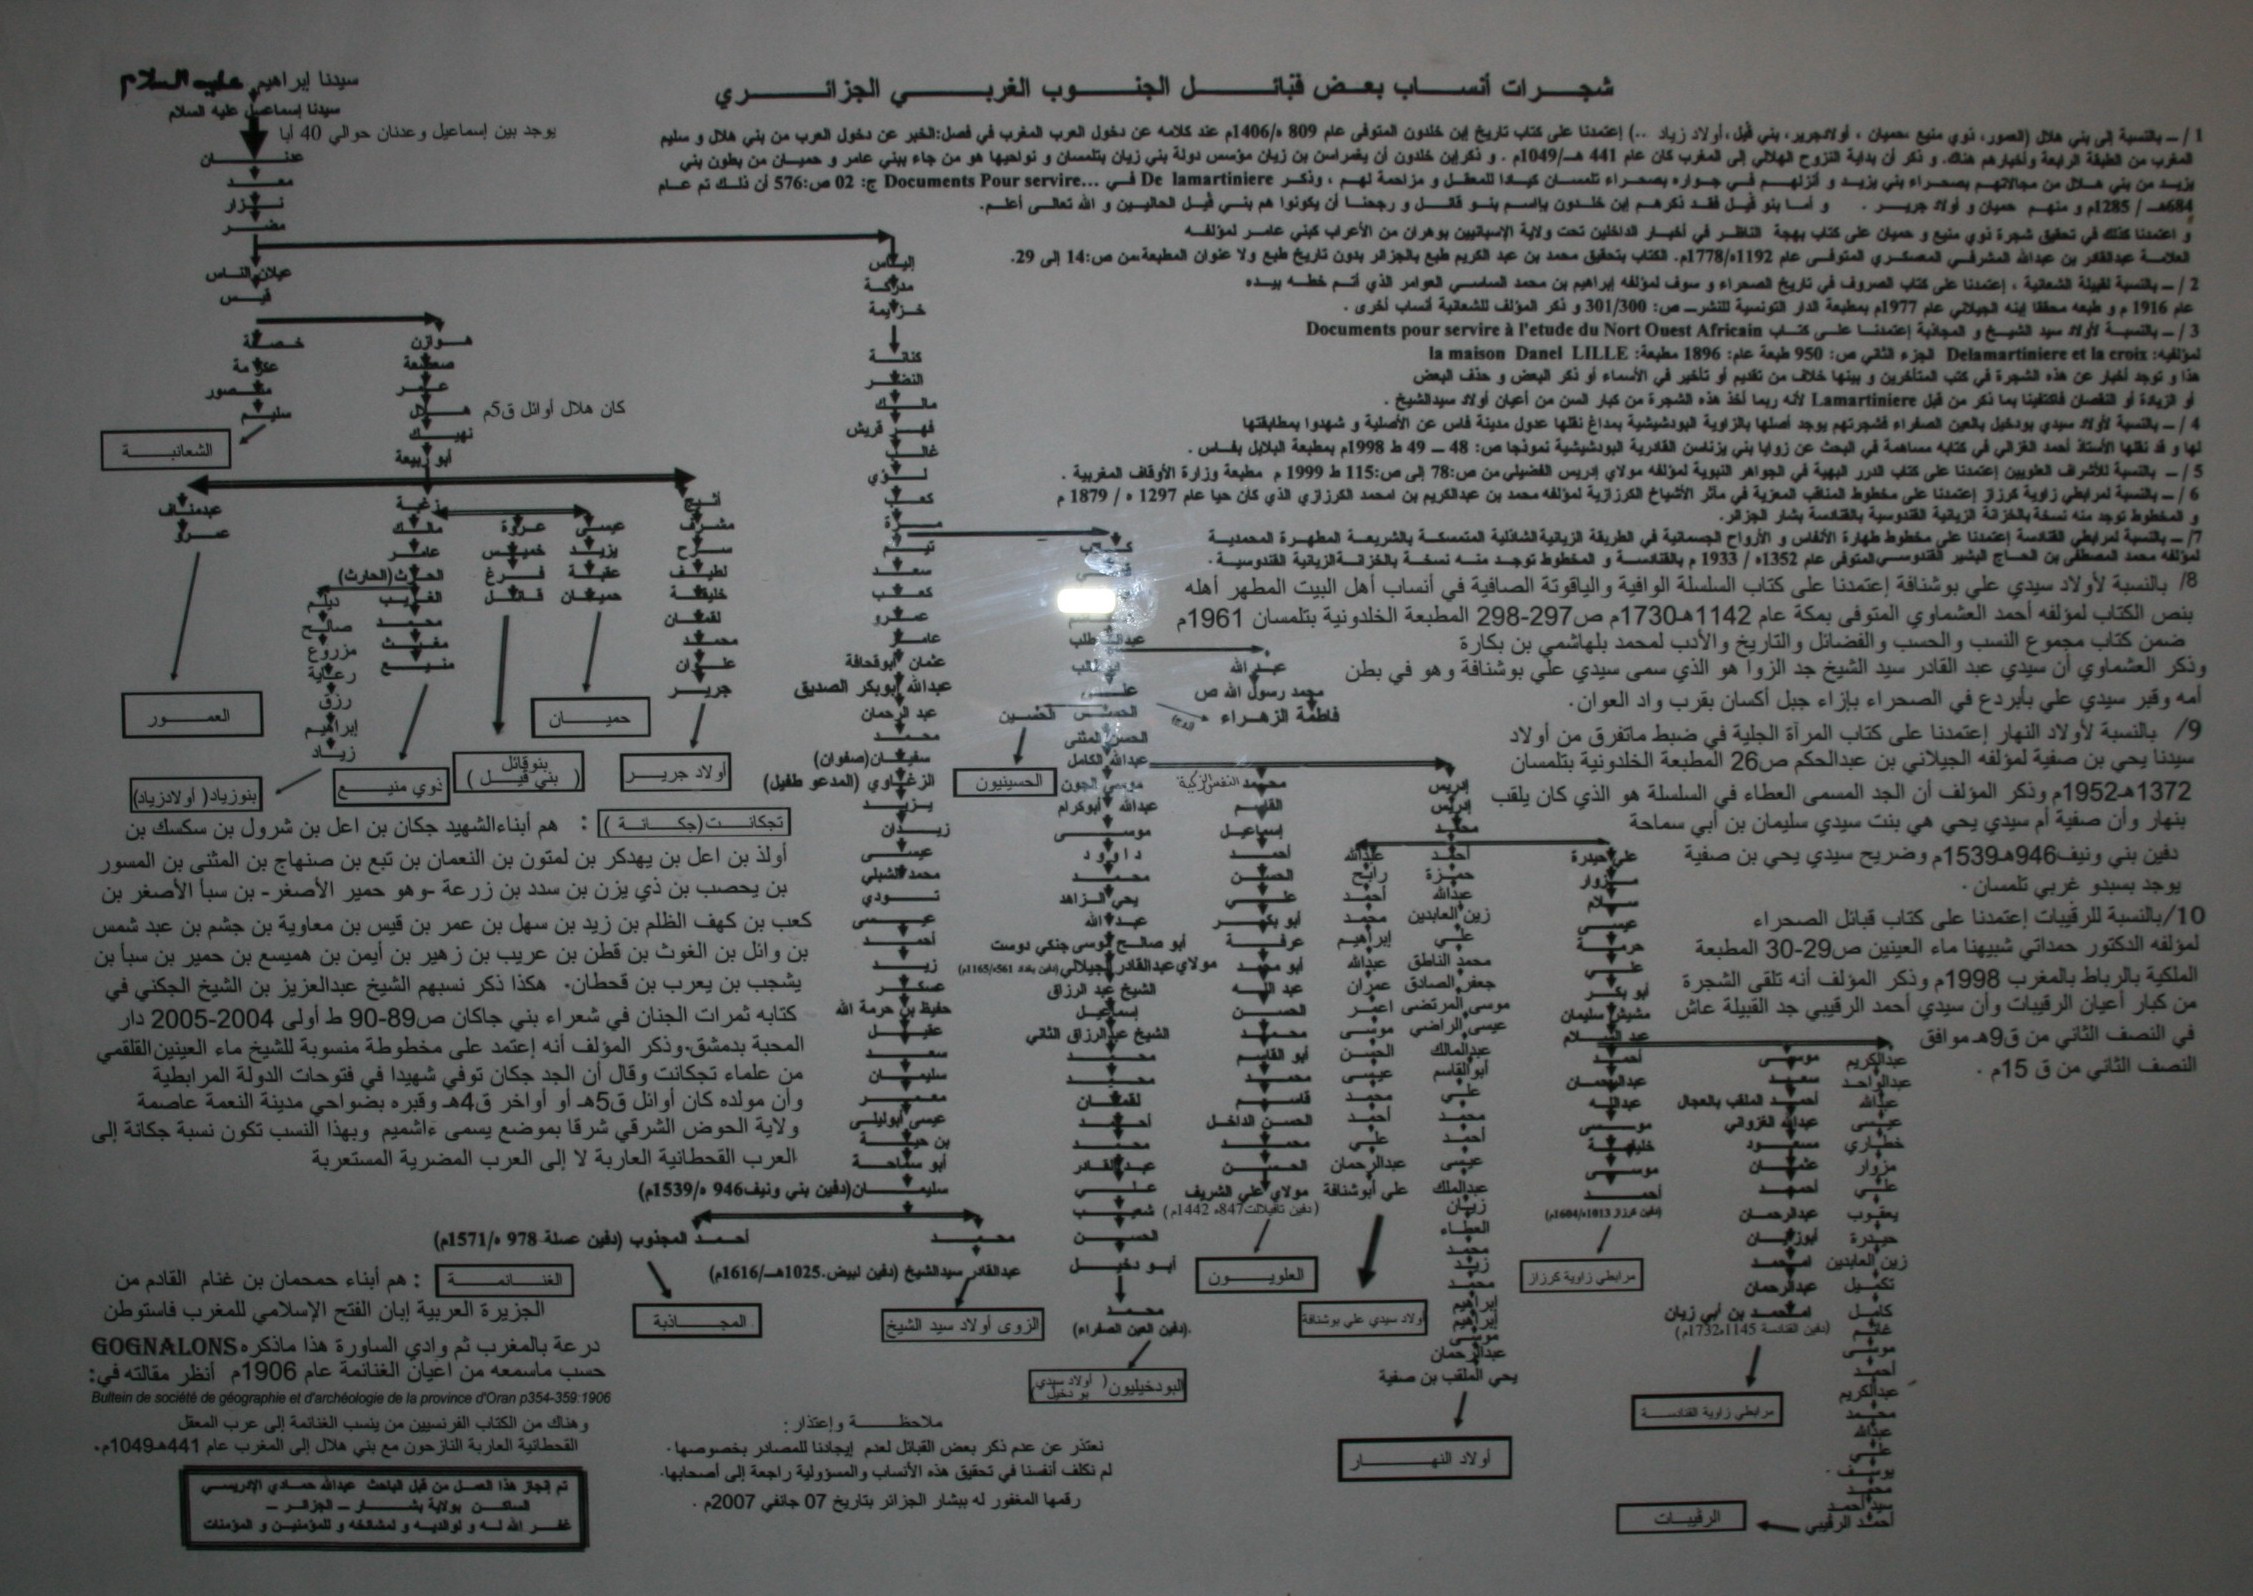 شجرات أنساب بعض قبائل الجنوب الغربي الجزائري
سيدنا إبراهيم عليه السلام
سيدنا إسماعيل عليه السلام
يوجد بين إسماعيل وعدنان حوالي 40 أبا
عدنان
معد
نزار
مضر
عيلان الناس
قيس
خصفة
عكرمة
منصور
سليم
الشعانبة
هوازن
صعصعة
عامر
هلال
كان هلال أوائل ق5م
نهيك
أبو ربيعة
عبدمناف
عمرو
العمور
زغبة
مالك
عامر
الحرث (الحارث)
الغريب
محمد
مغيث
منيع
ذوي منيع
ديلم
صالح
مزروع
رعاية
رزق
إبراهيم
زياد
بنوزياد (أولادزياد)
عروة
خميس
فرغ
قائل
بنوقائل
(بني قيل)
عيسى
يزيد
عقبة
حميان
حميان
أثبج
مشرف
سرح
لطيف
خليفة
لقمان
محمد
علوان
جرير
أولاد جرير
إلياس
مدركة
خزيمة
كنانة
النضر
مالك
فهر قريش
غالب
لؤي
كعب
مرة
تيم
سعد
كعب
عمرو
عامر
عثمان أبوقحافة
عبدالله أبوبكر الصديق
عبد الرحمان
محمد
سفيان (صفوان)
الزغاوي (المدعو طفيل)
يزيد
زيدان
عيسى
محمد الشبلي
تودي
عيسى
أحمد
زيد
عسكر
حفيظ بن حرمة الله
عقيل
سعد
سليمان
معمر
عيسى أبوليلى
بن حية
أبو سماحة
سليمان (دفين بني ونيف946 ه/1539م)
أحمد المجذوب (دفين عسلة 978 ه/1571م)
المجاذبة
محمد
عبدالقادر سيدالشيخ (دفين لبيض.1025هـ/1616م)
الزوى أولاد سيد الشيخ
عبدالمطلب
عبدالله
محمد رسول الله ص
فاطمة الزهراء
الحسين
الحسينيون
الحسن
الحسن المثنى
عبدالله الكامل
موسى الجون
عبدالله أبوكرام
موسى
داوود
محمد
يحي الزاهد
عبدالله
أبو صالح موسى جنكي دوست
مولاي عبدالقادر الجيلالي (دفين بغداد 561ه/1165م)
الشيخ عبد الرزاق
إسماعيل
الشيخ عبدالرزاق الثاني
محمد
محمد
لقمان
أحمد
محمد
عبدالقادر
علي
شعيب
الحسن
أبو دخيل
محمد
(دفين العين الصفراء).
البودخيليون (أولاد سيدي بودخيل)
محمد النفس الزكية
القاسم
إسماعيل
أحمد
الحسن
علي
أبو بكر
عرفة
أبو محمد
عبد الله
الحسن
محمد
أبو القاسم
محمد
قاسم
الحسن الداخل
محمد
الحسن
مولاي علي الشريف
(دفين تافيلالت847ه 1442م)
العلويون
إدريس
إدريس
محمد
عبدالله
رابح
أحمد
محمد
إبراهيم
عبدالله
عمران
اعمر
موسى
الحسن
عيسى
محمد
أحمد
علي
عبدالرحمان
علي أبوشنافة
أولاد سيدي علي بوشنافة
أحمد
حمزة
عبدالله
زين العابدين
علي
محمد الناطق
جعفر الصادق
موسى المرتضى
عيسى الراضي
عبدالمالك
أبوالقاسم
علي
محمد
أحمد
عيسى
عبدالملك
زيان
العطاء
محمد
زيد
محمد
إبراهيم
إبراهيم
موسى
عبدالرحمان
يحي الملقب بن صفية
أولاد النهار
علي حيدرة
مزوار
سلام
عيسى
حرمة
علي
أبو بكر
مشيش سليمان
عبد السلام
أحمد
عبدالرحمان
عبدالله
موسى
خليفة
موسى
أحمد
(دفين كرزاز 1013ه/1604م)
مرابطي زاوية كرزاز
موسى
سعيد
أحمد الملقب بالعجال
عبدالله الغزواني
مسعود
عثمان
أحمد
عبدالرحمان
أبوزيان
امحمد
عبدالرحمان
امحمد بن أبي زيان
(دفين القنادسة 1145ه1732م)
مرابطي زاوية القنادسة
عبدالكريم
عبدالواحد
عبدالله
عيسى
خطاري
مزوار
علي
يعقوب
حيدرة
زين العابدين
تكميل
كامل
غانم
موسى
أحمد
عبدالكريم
محمد
عبدالله
علي
يوسف
محمد
سيد أحمد
أحمد الرقيبي
الرقيبات
1/ـ بالنسبة إلى بني هلال (العمور، ذوي منيع ،حميان ، أولادجرير، بني قيل، أولاد زياد ..) إعتمدنا على كتاب تاريخ إبن خلدون المتوفى عام 809 ه/1406م عند كلامه عن دخول العرب المغرب في فصل:الخبر عن دخول العرب من بني هلال و سليم
المغرب من الطبقة الرابعة وأخبارهم هناك. و ذكر أن بداية النزوح الهلالي إلى المغرب كان عام 441 هـ/1049م . و ذكر إبن خلدون أن يغمراسن بن زيان مؤسس دولة بني زيان بتلمسان و نواحيها هو من جاء ببني عامر و حميان من بطون بني
يزيد من بني هلال من مجالاتهم بصحراء بني يزيد و أنزلهم في جواره بصحراء تلمسان كيادا للمعقل و مزاحمة لهم ، وذكر De lamartiniere في ...Documents Pour servire ج: 02 ص:576 أن ذلك تم عام
684هـ / 1285م و منهم حميان و أولاد جرير . و أما بنو قيل فقد ذكرهم إبن خلدون بإسم بنو قائل و رجحنا أن يكونوا هم بني قيل الحاليين و الله تعالى أعلم.
و اعتمدنا كذلك في تحقيق شجرة ذوي منيع و حميان على كتاب بهجة الناظر في أخبار الداخلين تحت ولاية الإسبانيين بوهران من الأعراب كبني عامر لمؤلفه
العلامة عبدالقادر بن عبدالله المشرفي المعسكري المتوفى عام 1192ه/1778م. الكتاب بتحقيق محمد بن عبد الكريم طبع بالجزائر بدون تاريخ طبع ولا عنوان المطبعة.من ص:14 إلى 29.
2/ـ بالنسبة لقبيلة الشعانبة ، إعتمدنا على كتاب الصروف في تاريخ الصحراء و سوف لمؤلفه إبراهيم بن محمد الساسي العوامر الذي أتم خطه بيده
عام 1916 م و طبعه محققا إبنه الجيلاني عام 1977م بمطبعة الدار التونسية للنشر ص: 301/300 و ذكر المؤلف للشعانبة أنساب أخرى .
3/ـ بالنسبة لأولاد سيد الشيخ و المجاذبة إعتمدنا على كتاب Documents pour servire à l'etude du Nort Ouest Africain
لمؤلفيه: Delamartiniere et la croix الجزء الثاني ص: 950 طبعة عام: 1896 مطبعة: la maison Danel LILLE
هذا و توجد أخبار عن هذه الشجرة في كتب المتأخرين و بينها خلاف من تقديم أو تأخير في الأسماء أو ذكر البعض و حذف البعض
أو الزيادة أو النقصان فاكتفينا بما ذكر من قبل Lamartiniere لأنه ربما أخذ هذه الشجرة من كبار السن من أعيان أولاد سيدالشيخ .
4/ـ بالنسبة لأولاد سيدي بودخيل بالعين الصفراء فشجرتهم يوجد أصلها بالزاوية البودشيشية بمداغ نقلها عدول مدينة فاس عن الأصلية و شهدوا بمطابقتها
لها و قد نقلها الأستاذ أحمد الغزالي في كتابه مساهمة في البحث عن زوايا بني يزناسن القادرية البودشيشية نموذجا ص: 48 ــ 49 ط 1998م بمطبعة البلابل بفاس .
5/ـ بالنسبة للأشراف العلويين إعتمدنا على كتاب الدرر البهية في الجواهر النبوية لمؤلفه مولاي إدريس الفضيلي من ص:78 إلى ص:115 ط 1999 م مطبعة وزارة الأوقاف المغربية .
6/ـ بالنسبة لمرابطي زاوية كرزاز إعتمدنا على مخطوط المناقب المعزية في مآثر الأشياخ الكرزازية لمؤلفه محمد بن عبدالكريم بن امحمد الكرزازي الذي كان حيا عام 1297 ه / 1879 م
و المخطوط توجد منه نسخة بالخزانة الزيانية القندوسية بالقنادسة بشار الجزائر.
7/ـ بالنسبة لمرابطي القنادسة إعتمدنا على مخطوط طهارة الأنفاس و الأرواح الجسمانية في الطريقة الزيانية الشاذلية المتمسكة بالشريعة المطهرة المحمدية
لمؤلفه محمد المصطفى بن الحاج البشير القندوسي المتوفى عام 1352ه / 1933 م بالقنادسة و المخطوط توجد منه نسخة بالخزانة الزيانية القندوسية .
8/ بالنسبة لأولاد سيدي علي بوشنافة إعتمدنا على كتاب السلسلة الوافية والياقوتة الصافية في أنساب أهل البيت المطهر أهله
بنص الكتاب لمؤلفه أحمد العشماوي المتوفى بمكة عام 1142هـ1730م ص297-298 المطبعة الخلدونية بتلمسان 1961م
ضمن كتاب مجموع النسب والحسب والفضائل والتاريخ والأدب لمحمد بلهاشمي بن بكارة
وذكر العشماوي أن سيدي عبد القادر سيد الشيخ جد الزوا هو الذي سمى سيدي علي بوشنافة وهو في بطن
أمه وقبر سيدي علي بأبردع في الصحراء بإزاء جبل أكسان بقرب واد العوان.
9/ بالنسبة لأولاد النهار إعتمدنا على كتاب المرآة الجلية في ضبط ماتفرق من أولاد
سيدنا يحي بن صفية لمؤلفه الجيلاني بن عبدالحكم ص26 المطبعة الخلدونية بتلمسان
1372هـ1952م وذكر المؤلف أن الجد المسمى العطاء في السلسلة هو الذي كان يلقب
بنهار وأن صفية أم سيدي يحي هي بنت سيدي سليمان بن أبي سماحة
دفين بني ونيف946هـ1539م وضريح سيدي يحي بن صفية
يوجد بسبدو غربي تلمسان .
10/بالنسبة للرقيبات إعتمدنا على كتاب قبائل الصحراء
لمؤلفه الدكتور حمداتي شبيهنا ماء العينين ص29-30 المطبعة
الملكية بالرباط بالمغرب 1998م وذكر المؤلف أنه تلقى الشجرة
من كبار أعيان الرقيبات وأن سيدي أحمد الرقيبي جد القبيلة عاش
في النصف الثاني من ق9هـ موافق
النصف الثاني من ق 15م .
تجكانت (جكانة) : هم أبناءالشهيد جكان بن اعل بن شرول بن سكسك بن
أولذ بن اعل بن يهدكر بن لمتون بن النعمان بن تبع بن صنهاج بن المثنى بن المسور
بن يحصب بن ذي يزن بن سدد بن زرعة -وهو حمير الأصغر- بن سبأ الأصغر بن
كعب بن كهف الظلم بن زيد بن سهل بن عمر بن قيس بن معاوية بن جشم بن عبد شمس
بن وائل بن الغوث بن قطن بن عريب بن زهير بن أيمن بن هميسع بن حمير بن سبأ بن
يشجب بن يعرب بن قحطان. هكذا ذكر نسبهم الشيخ عبدالعزيز بن الشيخ الجكني في
كتابه ثمرات الجنان في شعراء بني جاكان ص89-90 ط أولى 2004-2005 دار
المحبة بدمشق.وذكر المؤلف أنه إعتمد على مخطوطة منسوبة للشيخ ماء العينين القلقمي
من علماء تجكانت وقال أن الجد جكان توفي شهيدا في فتوحات الدولة المرابطية
وأن مولده كان أوائل ق5هـ أو أواخر ق4هـ وقبره بضواحي مدينة النعمة عاصمة
ولاية الحوض الشرقي شرقا بموضع يسمى ءاشميم وبهذا النسب تكون نسبة جكانة إلى
العرب القحطانية العاربة لا إلى العرب المضرية المستعربة
الغنانمة : هم أبناء حمحمان بن غنام القادم من
الجزيرة العربية إبان الفتح الإسلامي للمغرب فاستوطن
درعة بالمغرب ثم وادي الساورة هذا ماذكره GOGNALONS
حسب ماسمعه من أعيان الغنانمة عام 1906م أنظر مقالته في:
Bultein de société de géographie et d'archéologie de la province d'Oran p354-359:1906
وهناك من الكتاب الفرنسيين من ينسب الغنانمة إلى عرب المعقل
القحطانية العاربة النازحون مع بني هلال إلى المغرب عام 441هـ1049م.
تم إنجاز هذا العمل من قبل الباحث عبدالله حمادي الإدريسي
الساكن بولاية بشار ــ الجزائر ــ
غفر الله له و لوالديه و لمشائخه و للمؤمنين و المؤمنات
ملاحظة وإعتذار:
نعتذر عن عدم ذكر بعض القبائل لعدم إيجادنا للمصادر بخصوصها.
لم نكلف أنفسنا في تحقيق هذه الأنساب والمسؤولية راجعة إلى أصحابها.
رقمها المغفور له ببشار الجزائر بتاريخ 07 جانفي 2007م .